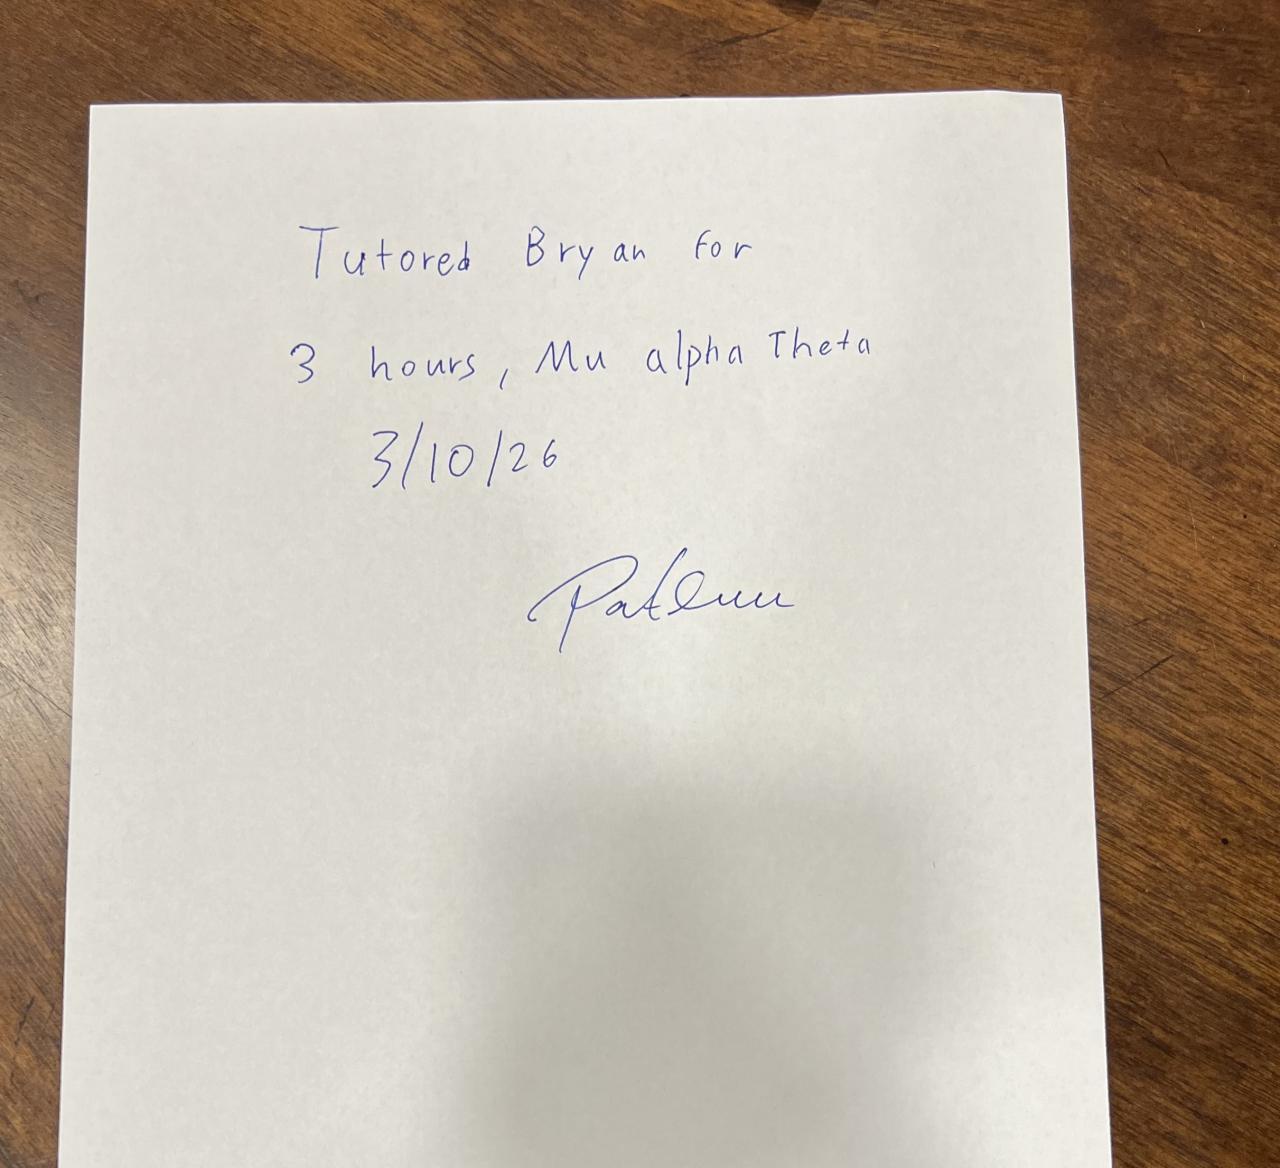 Tutored Bryan for
3 hours, Mu alpha Theta
3/10/26